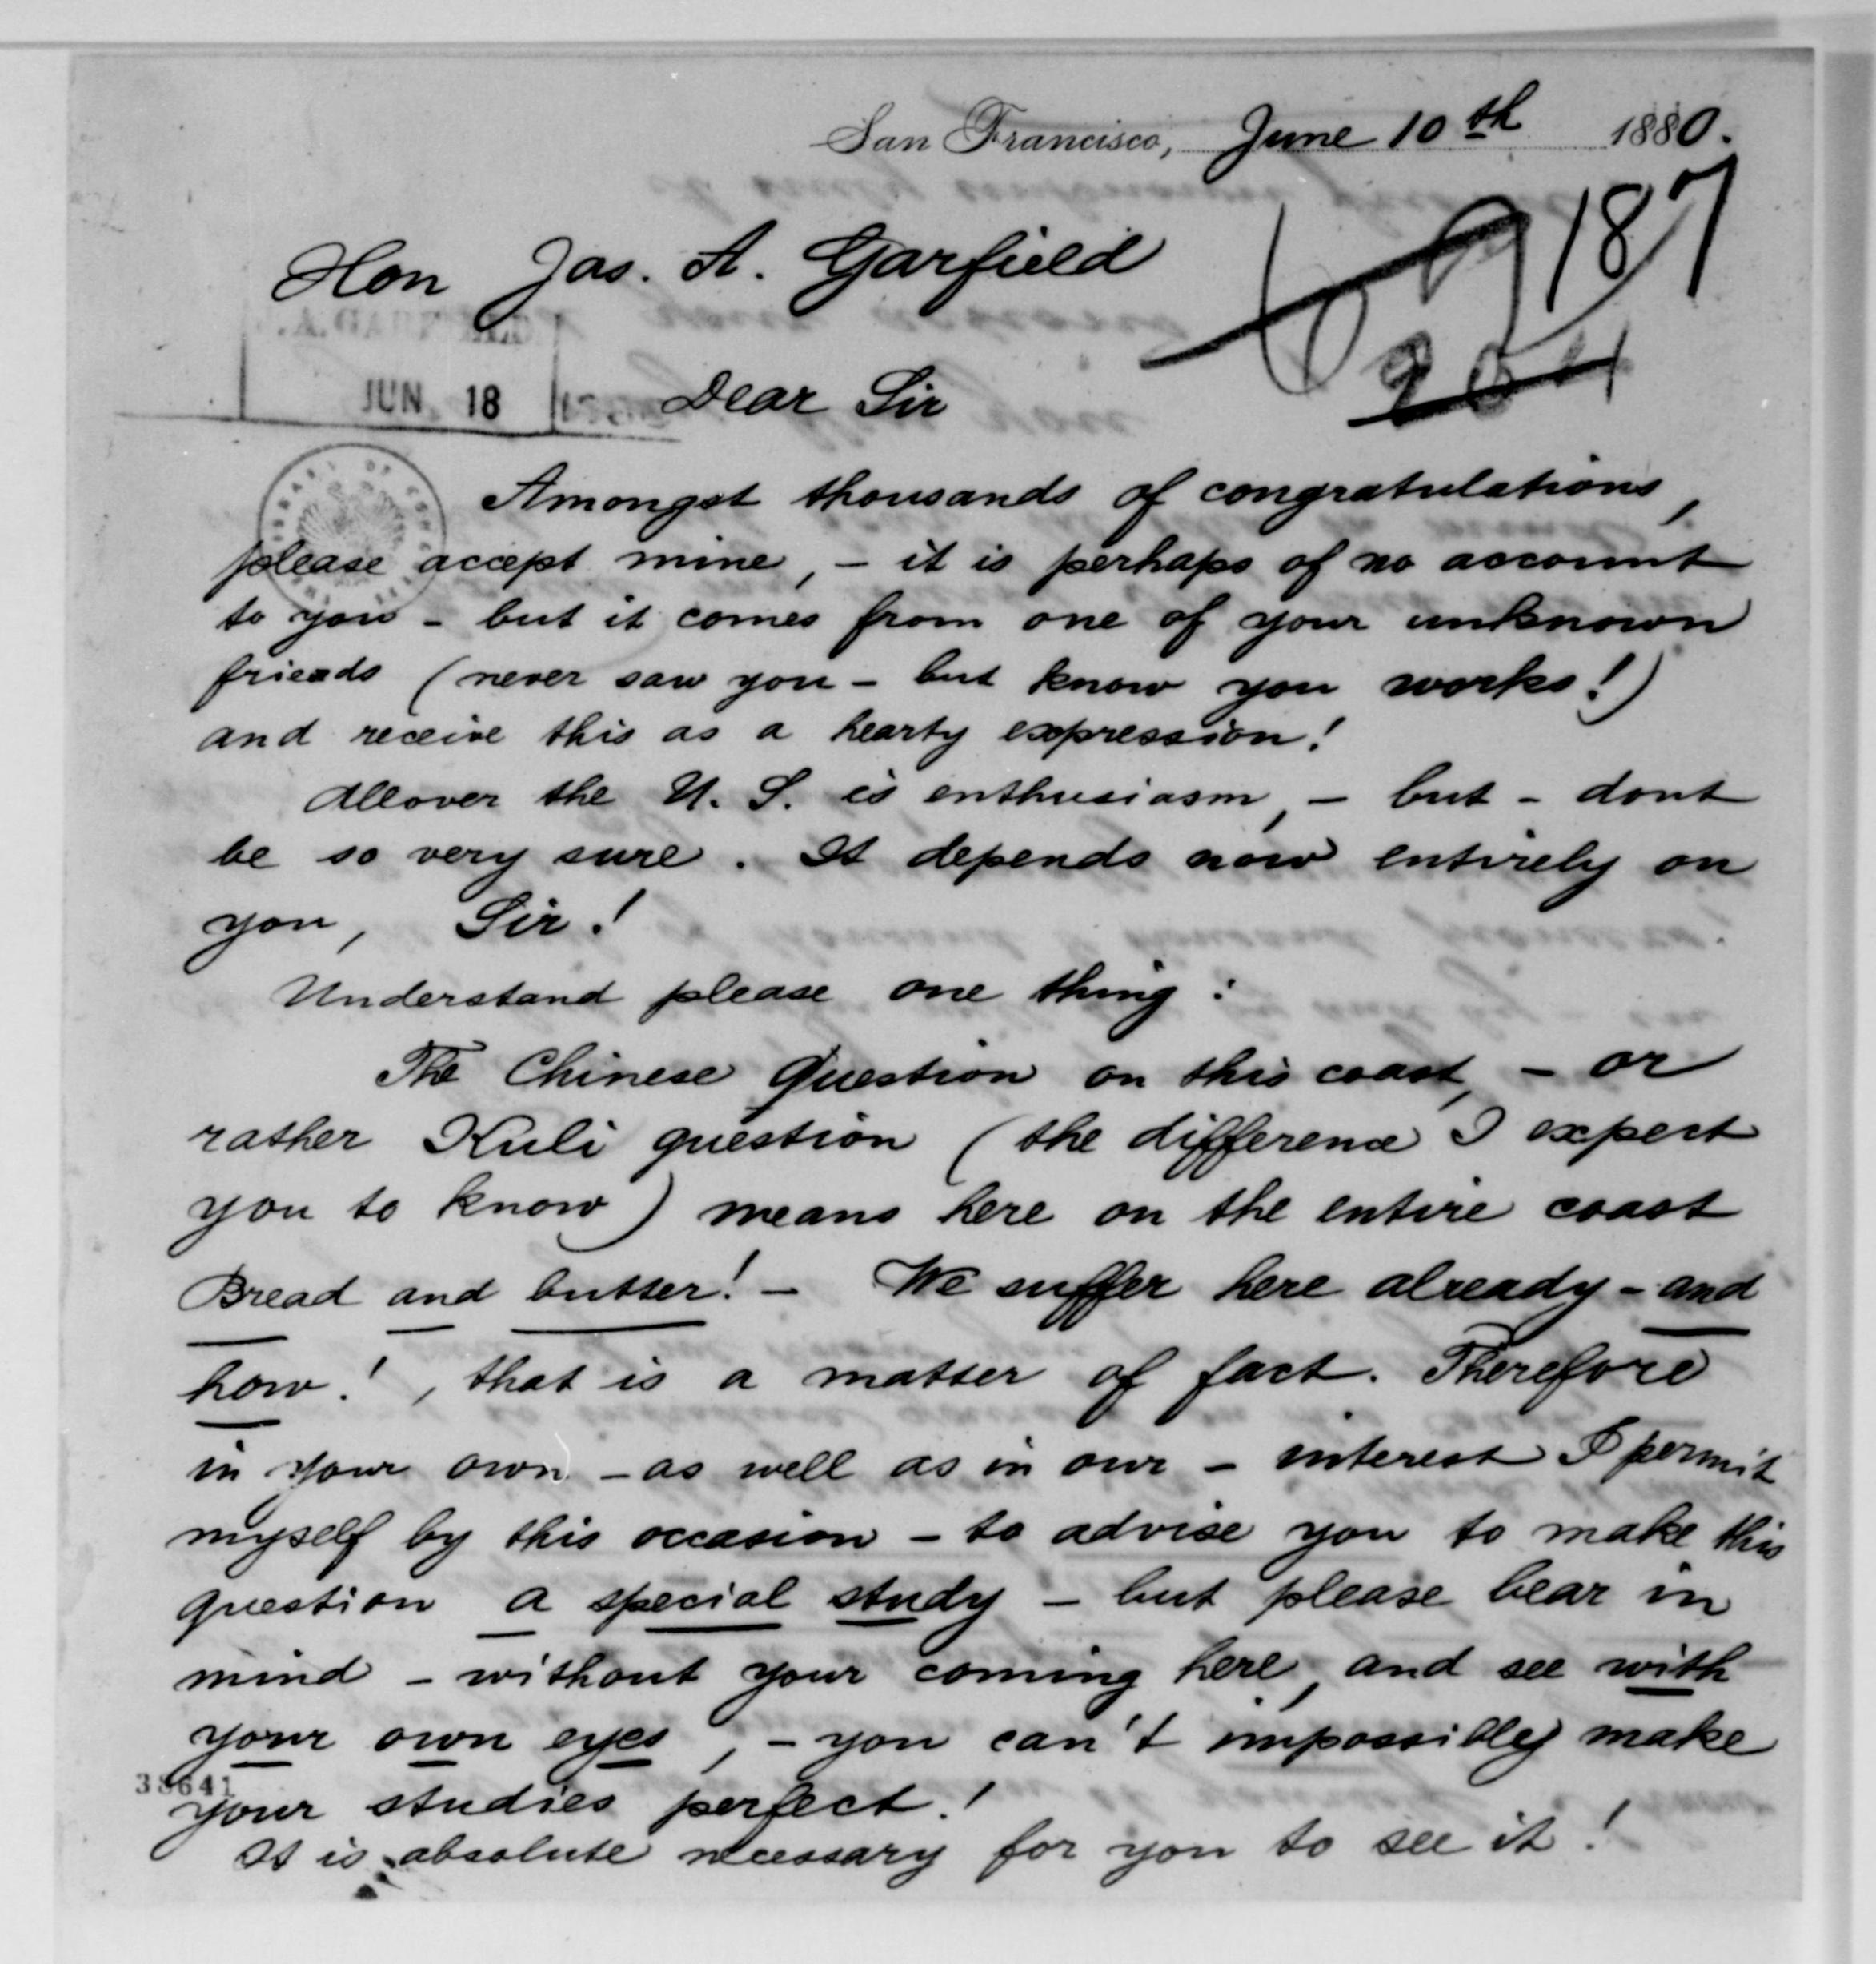 San Francisco, June 10th 1880.
187
69
204
Hon Jas. A. Garfield
J.A. GARFIELD
JUN 18
Dear Sir
Amongst thousands of congratulations,
please accept mine, – it is perhaps of no account
to you – but it comes from one of your unknown
friends (never saw you – but know you works!)
and receive this as a hearty expression!
Allover the U. S. is enthusiasm, – but – dont
be so very sure. It depends now entirely on
you, Sir!
Understand please one thing:
The Chinese Question on this coast, – or
rather Kuli question (the difference I expect
you to know) means here on the entire coast
Bread and butter! – We suffer here already – and
how!, that is a matter of fact. Therefore
in your own – as well as in our – interest I permit
myself by this occasion – to advise you to make this
question a special study – but please bear in
mind – without your coming here, and see with
your own eyes, – you can't impossibley make
38641
your studies perfect!
It is absolute necessary for you to see it!